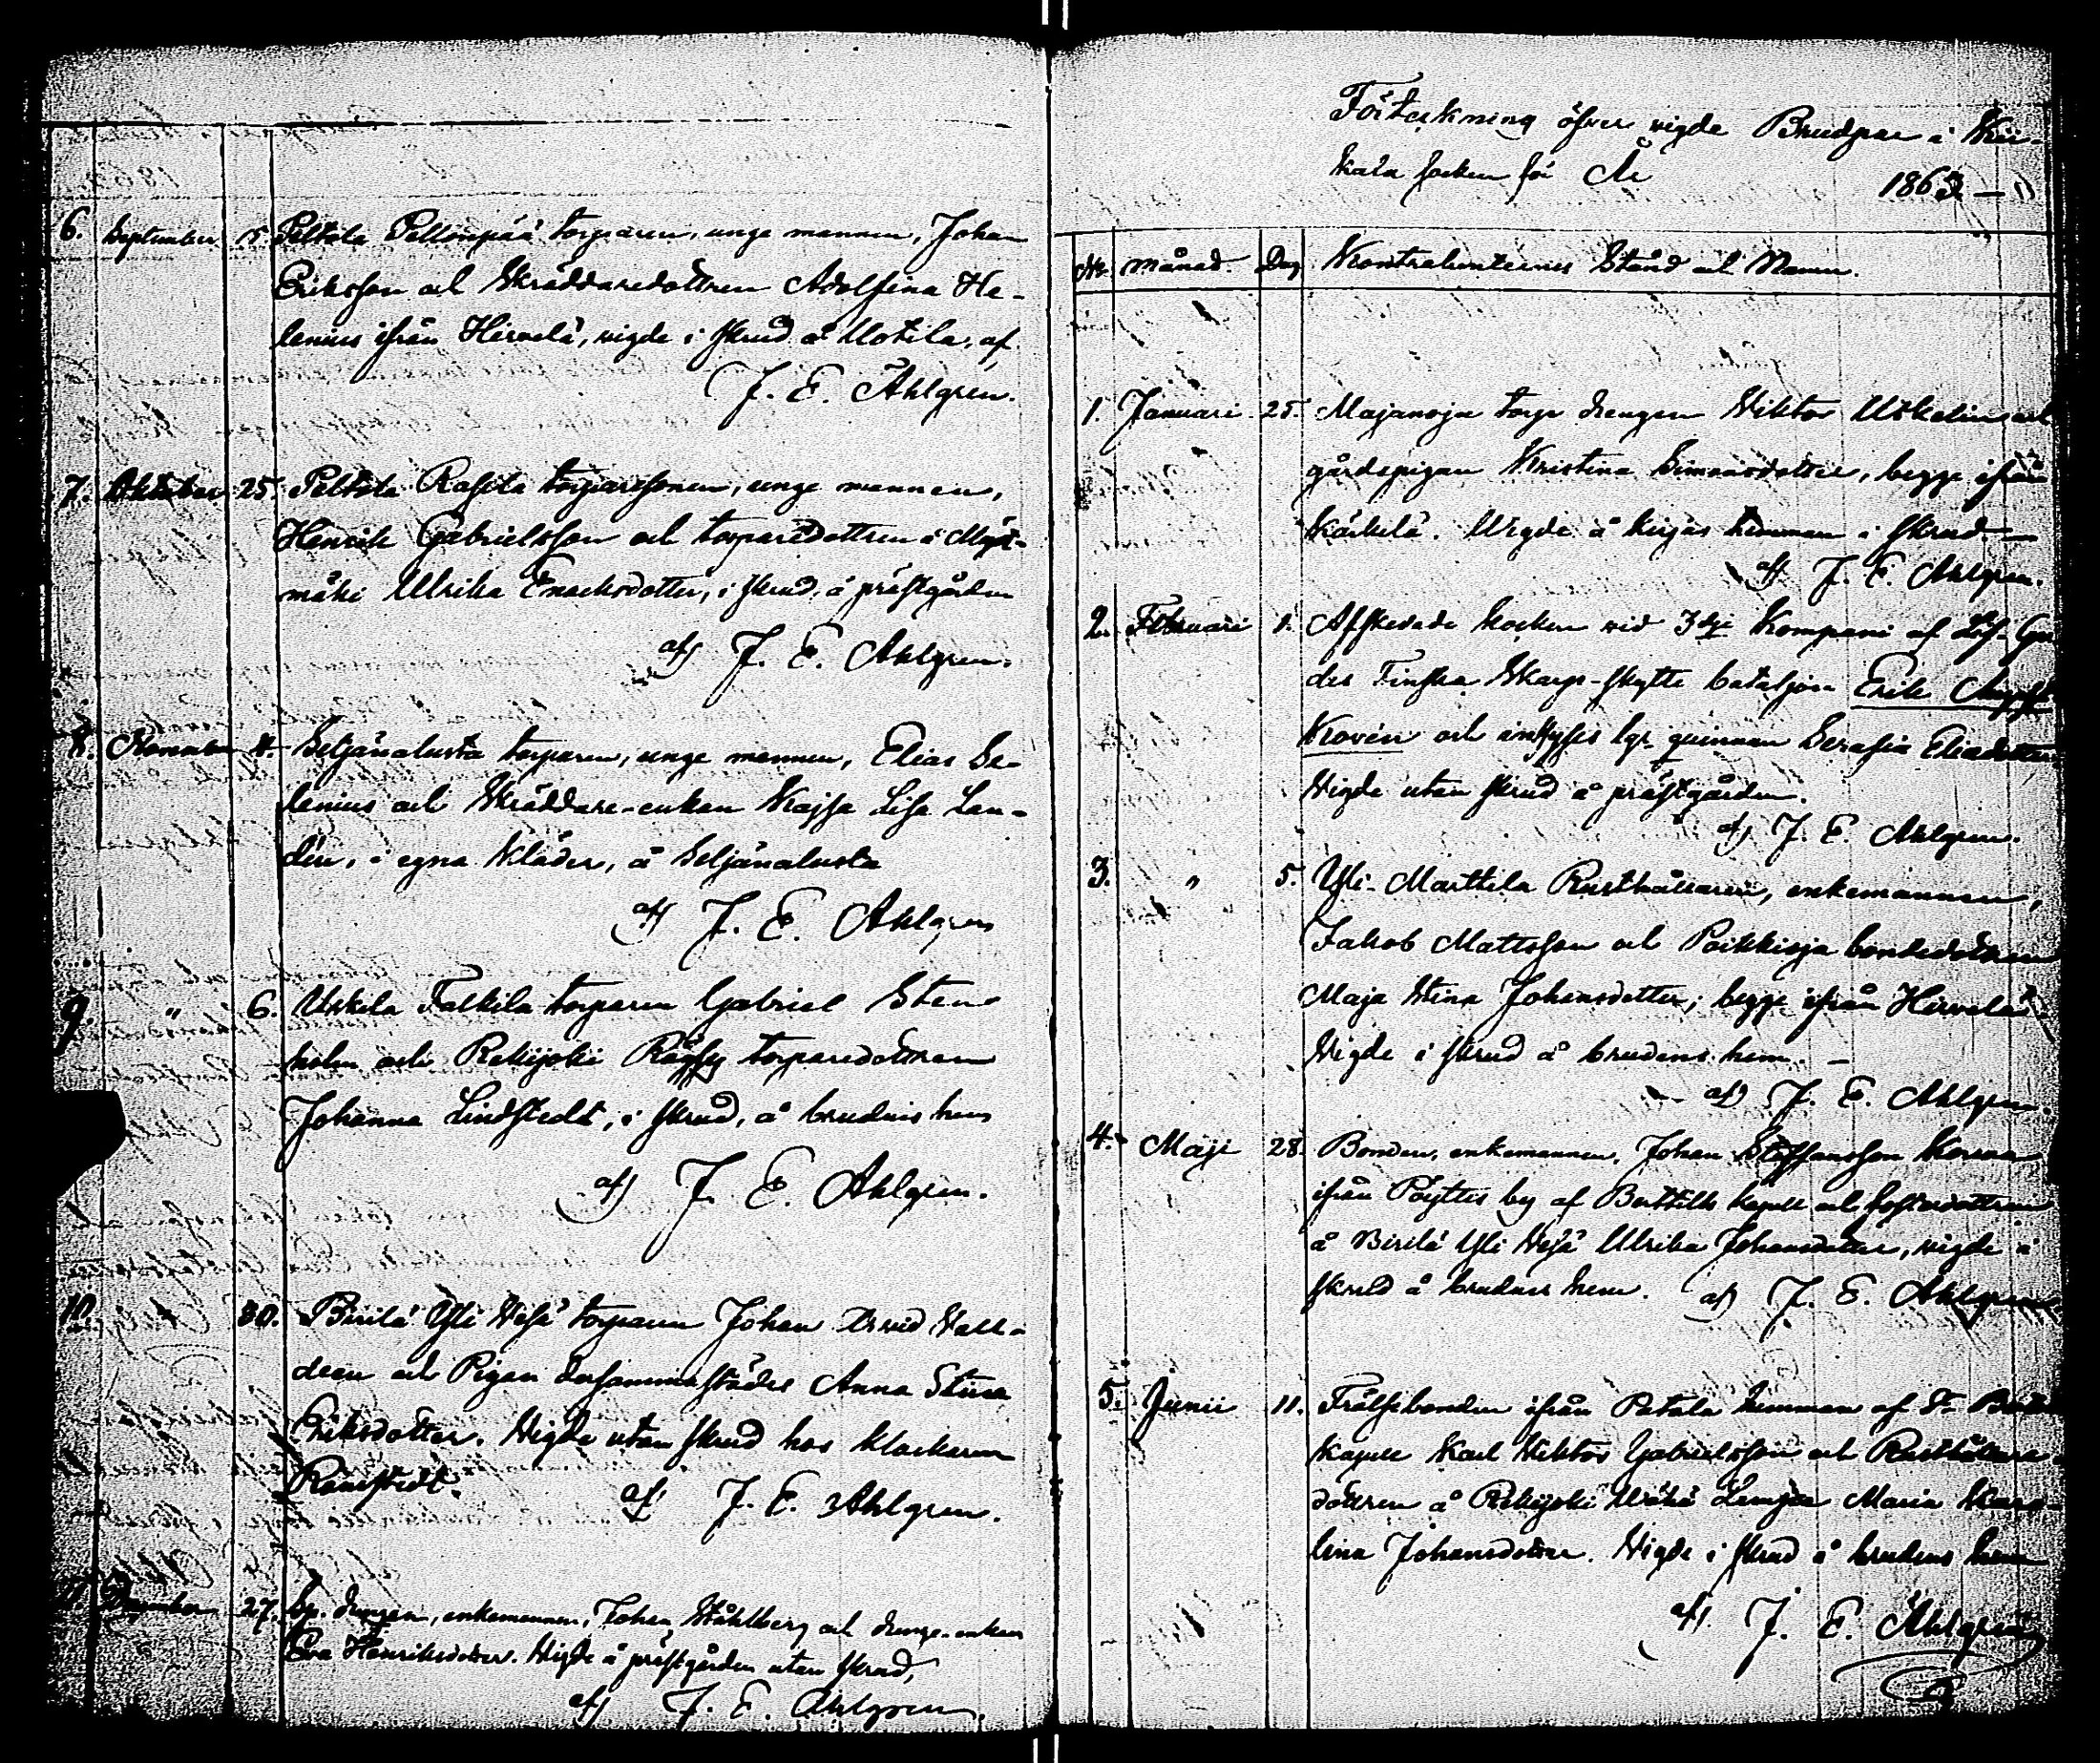 6. September 15. Peltola Pellonpää torparen, unge mannen, Johan
Eriksson och Skräddaredottren Adolfina He-
lenius ifrån Hirvelä, vigde i skrud å Uotila, af
J. E. Ahlgren.
7. Oktober 25. Peltola torparesonen, unge mannen,
Henrik Gabrielsson och torparedottren å
mäki Ulrika Enocksdotter, i skrud, å prästgården
af J. E. Ahlgren.
8. November 4. Seljänalusta torparen, unge mannen, Elias Se-
lenius och Skräddare-enkan Kajsa Lisa Lan-
dén, i egna kläder, å Seljänalusta
af J. E. Ahlgren
9 " 6. Uskela Talkila torparen Gabriel Sten-
holm och Rekijoki torparedottren
Johanna Lindstedt, i skrud, å brudens hem
af J. E. Ahlgren.
10. " 30. Pirilä Yli torparen Johan Arvid
och Pigan dersammastädes Anna Stina
Eriksdotter. Vigde utan skrud hos klockaren
af J. E. Ahlgren.
11 December 27. drengen, enkemannen, Johan Ståhlberg och drenge-enkan
Eva Henriksdotter. Vigde å prästgården utan skrud,
af J. E. Ahlgren.
Förteckning öfver vigde Brudpar i Kii-
kala socken för År 1863 –
No månad. Dag Kontrahenternes Stånd och Namn.
1. Januari 25. Majanoja torp drengen Viktor Uskelin och
gårdspigan Kristina Simonsdotter, begge ifrån
Kärkelä. Vigde å hemman i skrud –
af J. E. Ahlgren.
2. Februari 1. Afskedade kocken vid 3dje Kompani af Lif-Gar
des Finska Skarp-skytte bataljon Erik
Kovén och inhyses qvinnan Serafia Eliedotter
Vigde utan skrud å prästgården.
af J. E. Ahlgren.
3. " 5. Yli-Marttila Rusthållaren, enkemannen,
Jakob Mattsson och Poikkioja bondedottren
Maja Stina Johansdotter, begge ifrån Hirvelä
Vigde i skrud å brudens hem. –
af J. E. Ahlgren.
4. Maji 28. Bonden, enkemannen, Johan Steffansson
ifrån Pöytiö by af kapell och
å Pirilä Yli Ulrika Johansdotter, vigde i
skrud å brudens hem. af J. E. Ahlgren
5. Junii 11. Frälsebonden ifrån Patala hemman af
kapell Karl Viktor Gabrielsson och Rusthållare-
dottren å Rekijoki Maria Karo-
lina Johansdotter. Vigde i skrud å brudens hem
af J. E. Ahlgren